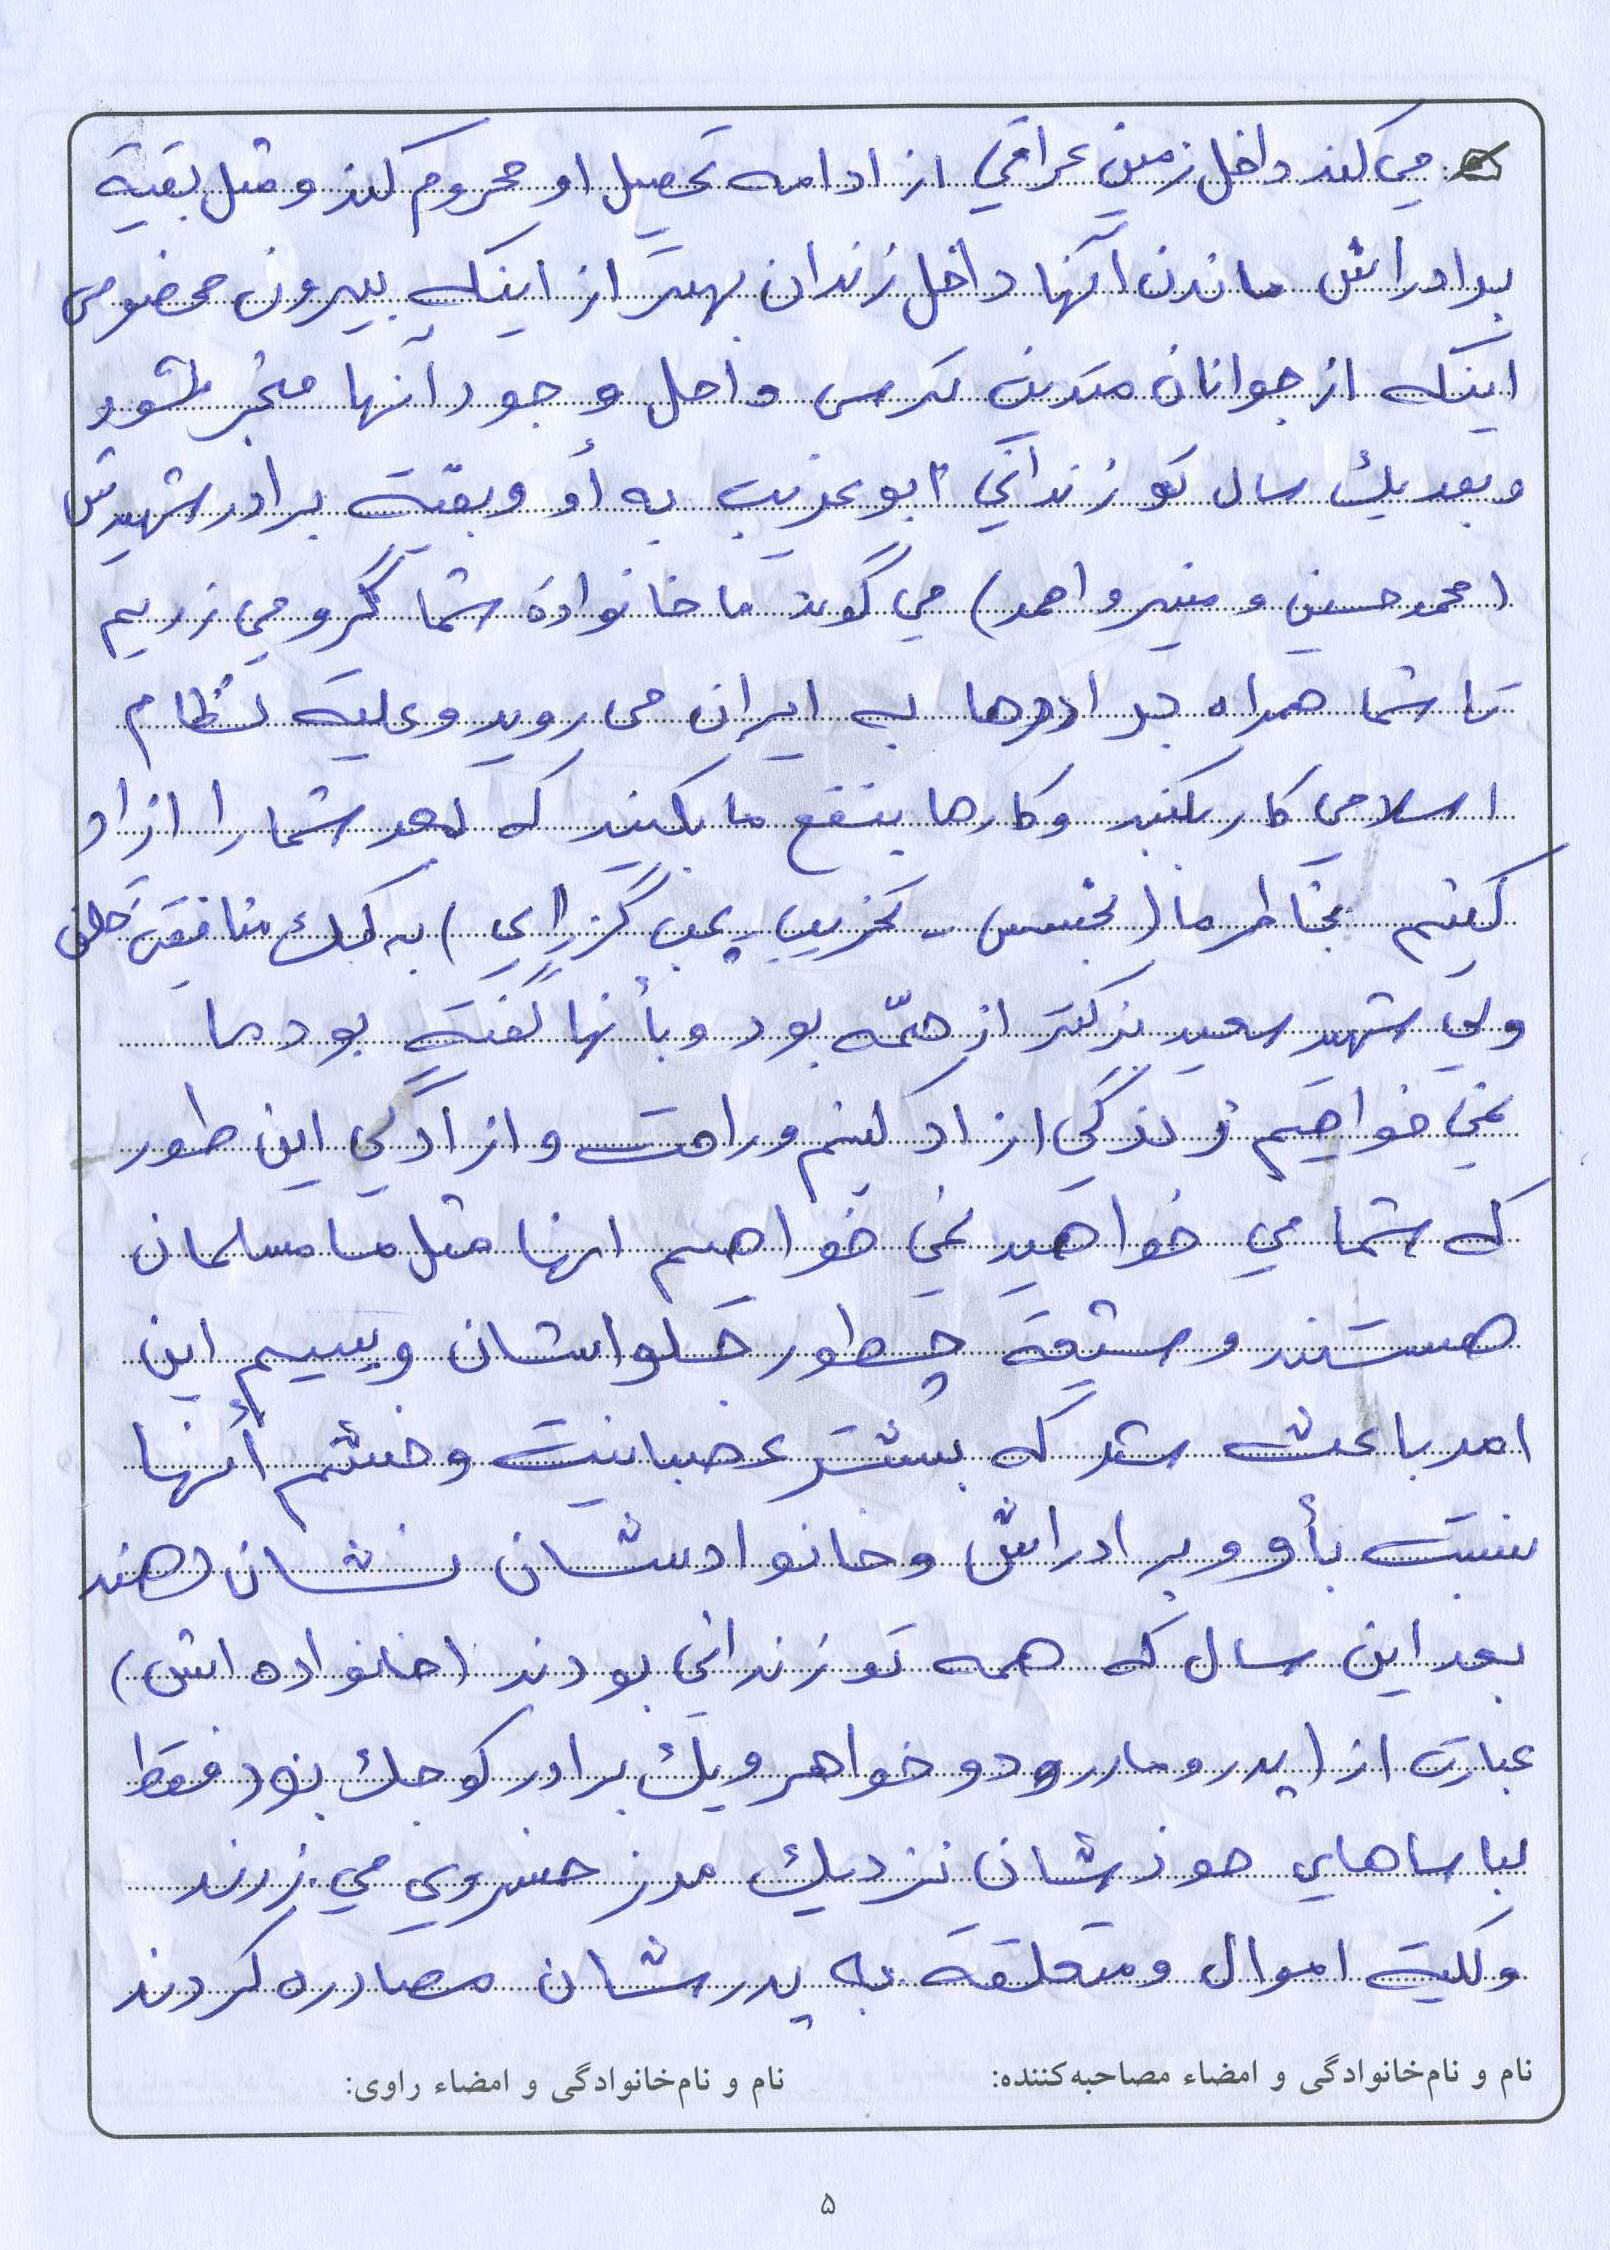 می کند داخل زمین عراقی) از ادامه تحصیل او محروم کند و مثل بقیة
برادراش ماندن آنها داخل زندان بهتر از اینکه بیرون مخصوص
اینکه از جوانان متدین ترس واصل وجود آنها منجر بشود
وبعد یك سال تو زندانی ابوغریب به أو وبقیّة برادر شهیدش
(محمد حسین و منیر و احمد) می گوید ما خانوادة شما گرو می زریم
تا شما همراه برادرها به ایران می روید وعلیة نظام
اسلامی کار بکنید وکارها بنفع ما بکنید که بعد شما را ازاد
کنیم بخاطر ما (تجسس - تخریب - بمب گزرایی) به کمك منافقین خلق
ولی شهید سعید بزرگتر از همّه بود و بأنها گفتة بود ما
نمی خواهیم زندگی ازاد کنیم وراحت و ازادگی این طور
که شما می خواهید نمی خواهیم انها مثل ما مسلمان
هستند و شیعة چطور جلواشان وبیسیم این
امر باعث شد که بیشتر عصبانیت وخشم أنها
نسبت بأو وبرادراش وخانوادشان نشان دهند
بعد این سال که همه تو زندانی بودند (خانواده اش)
عبارت از (پدر ومادر و دو خواهر ویك برادر کوجك بود فقط
لباساهای خودشان نزدیك مرز خسروی می زرند
وکلیة اموال ومتعلقة به پدرشان مصادره کردند
نام و نام‌خانوادگی و امضاء مصاحبه‌کننده: نام و نام‌خانوادگی و امضاء راوی:
۵